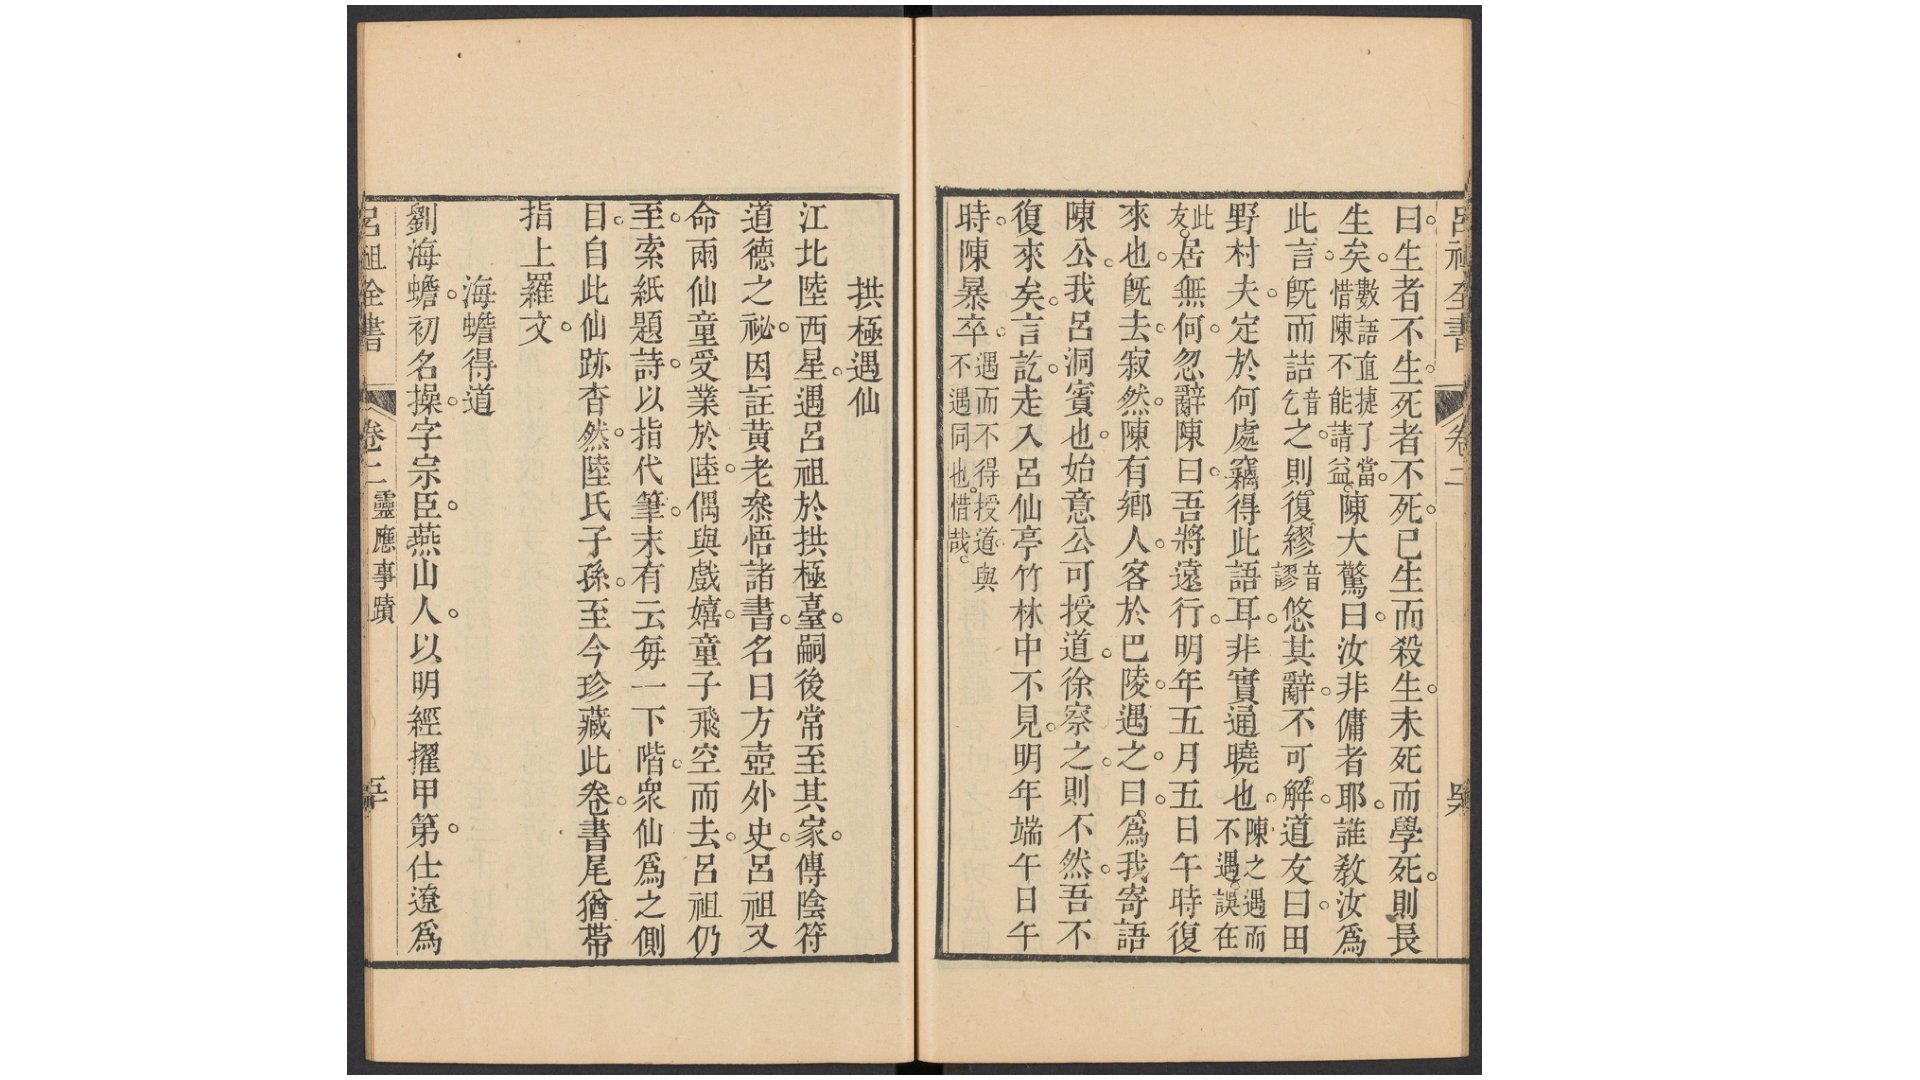 呂祖全書 卷二
曰。生者不生。死者不死。已生而殺生。未死而學死。則長
生矣。數語直捷了當。惜陳不能請益。陳大驚曰。汝非傭者耶。誰教汝爲
此言。既而詰音乞之。則復繆音謬悠其辭。不可解。道友曰。田
野村夫。定於何處竊得此語耳。非實通曉也。陳之遇而不遇。誤在
此友。居無何。忽辭陳曰。吾將遠行。明年五月五日午時復
來也。既去。寂然。陳有鄉人。客於巴陵。遇之。曰。爲我寄語
陳公。我呂洞賓也。始意公可授道。徐察之。則不然。吾不
復來矣。言訖。走入呂仙亭竹林中不見。明年端午日午
時。陳暴卒。遇而不得授道。與不遇同也。惜哉。
拱極遇仙
江北陸西星。遇呂祖於拱極臺。嗣後常至其家。傳陰符
道德之祕。因註黃老叅悟諸書。名曰方壺外史。呂祖又
命兩仙童受業於陸。偶與戲嬉。童子飛空而去。呂祖仍
至。索紙題詩。以指代筆。末有云每一下階。衆仙爲之側
目。自此仙跡杳然。陸氏子孫。至今珍藏此卷。書尾猶帶
指上羅文。
海蟾得道
劉海蟾。初名操。字宗臣。燕山人。以明經擢甲第。仕遼爲
呂祖全書 卷二 靈應事蹟